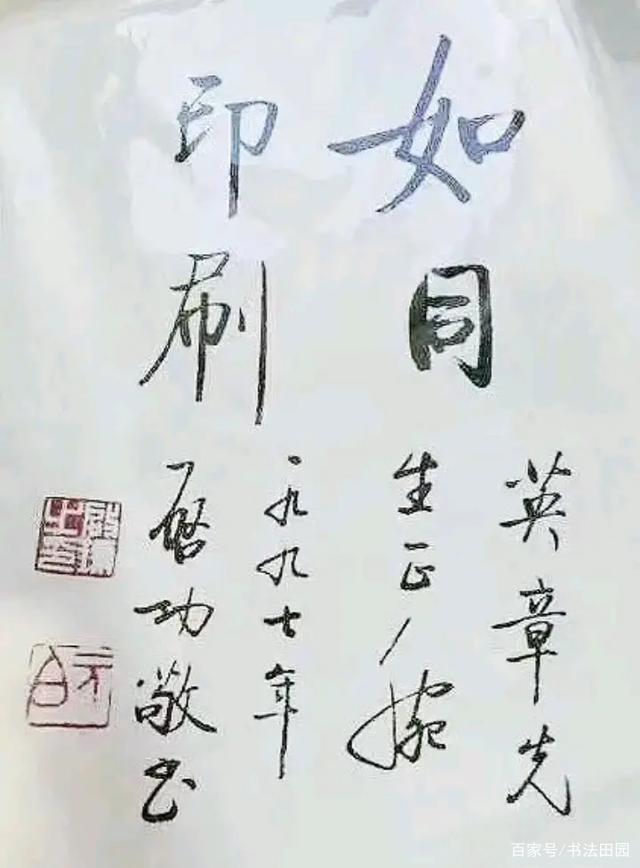 如同
印刷
英章先
生正
一九九七年
启功敬书
元白
百家号/书法田园